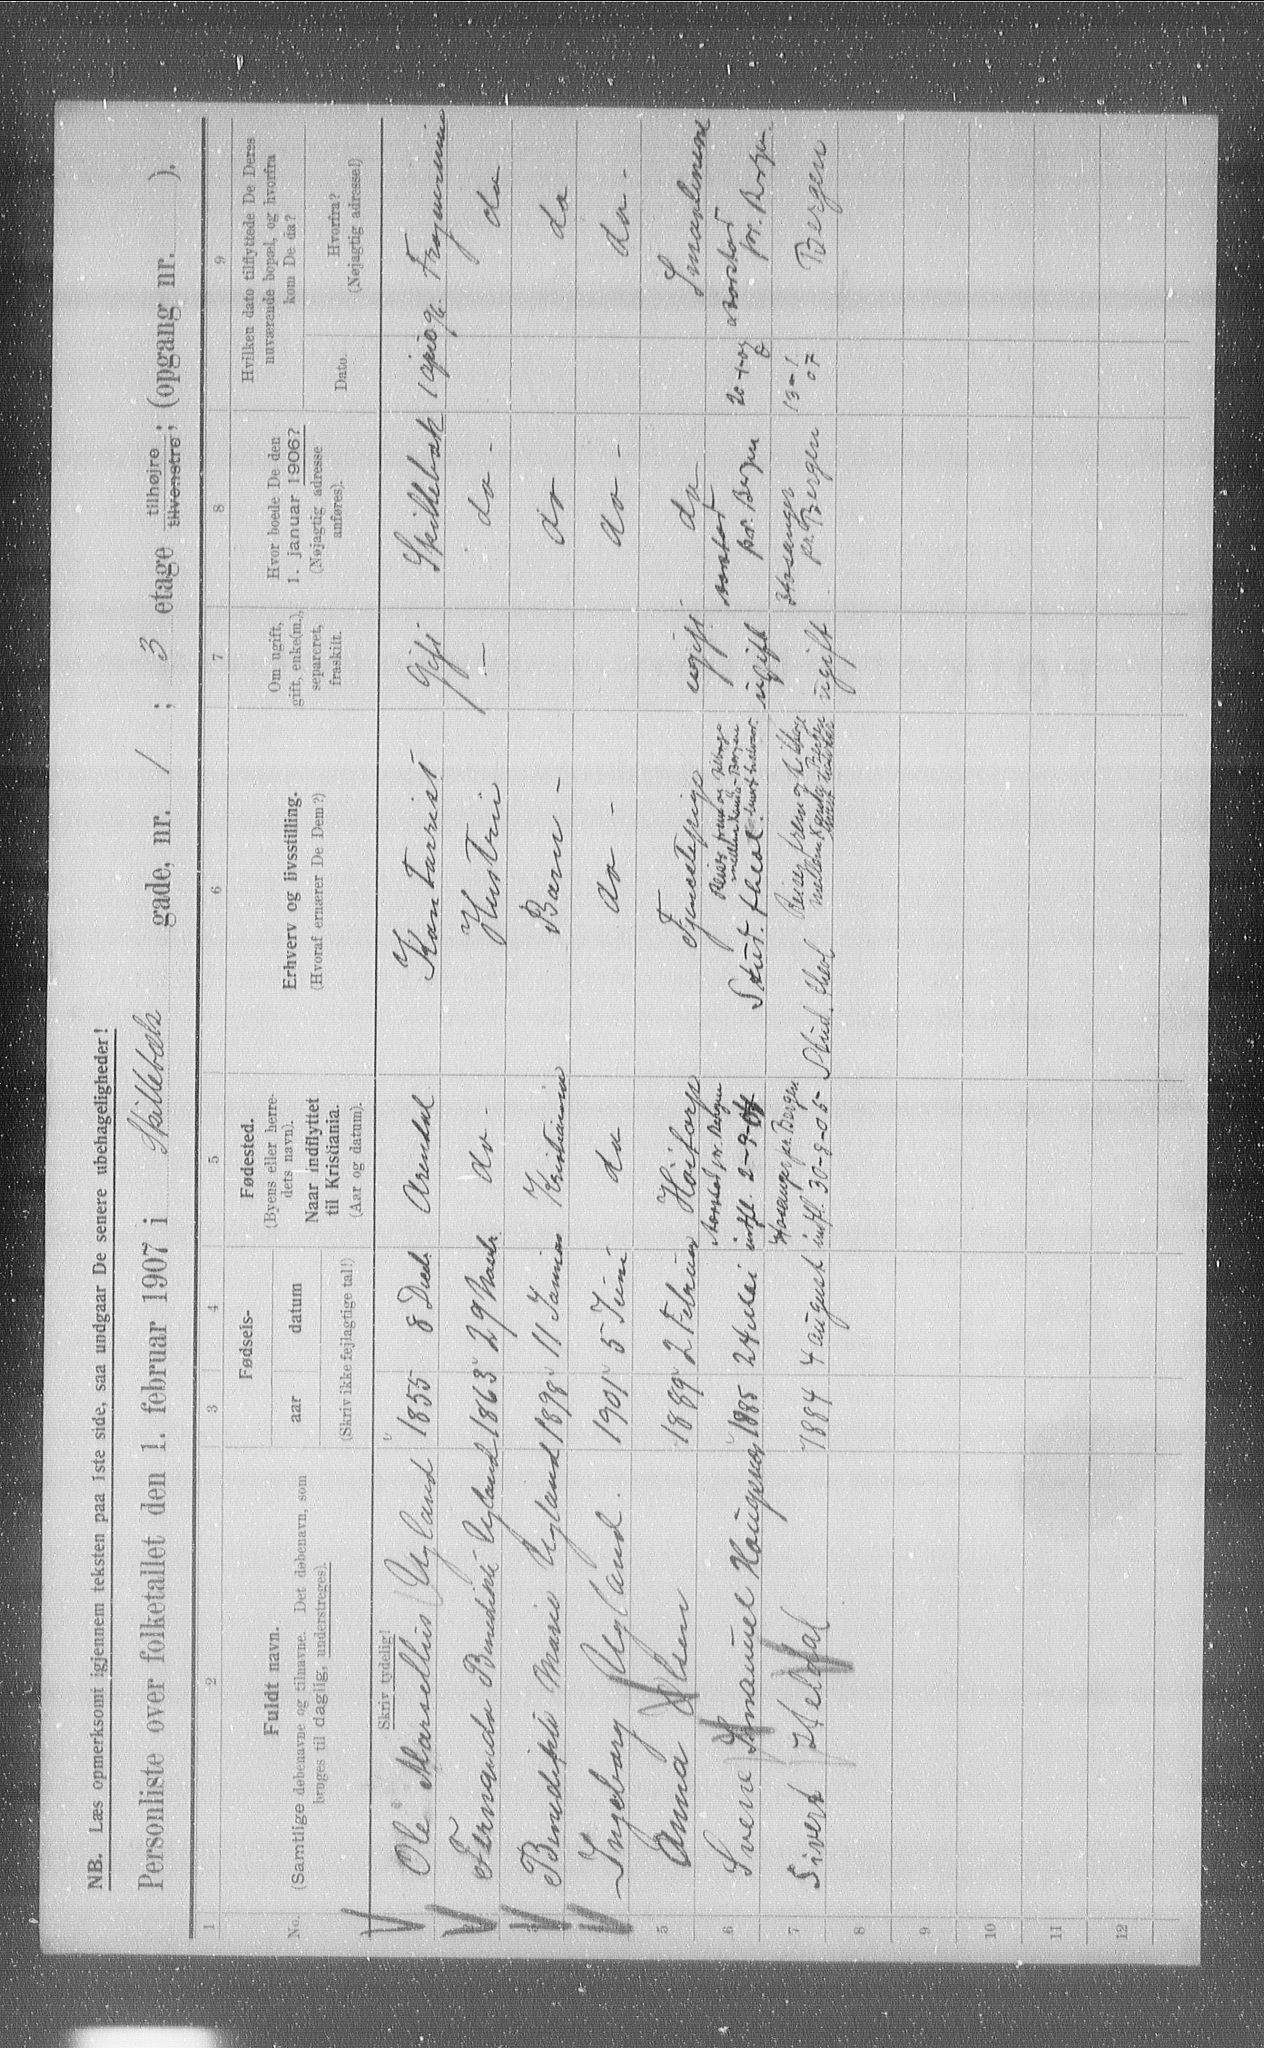 NB. Læs opmerksomt igjennem teksten paa 1ste side, saa undgaar De senere ubehageligheder!
Personliste over folketallet den 1. februar 1907 i Skillebæks gade, nr. 1 ; 3 etage tilhøjre tilvenstre; (opgang nr. ).
1 2 3 4 5 6 7 8 9
No.
Fuldt navn.
(Samtlige døbenavne og tilnavne. Det døbenavn, som
bruges til daglig, understreges).
Fødsels-
aar datum
(Skriv ikke fejlagtige tal!)
Fødested.
(Byens eller herre-
dets navn).
Naar indflyttet
til Kristiania.
(Aar og datum).
Erhverv og livsstilling.
(Hvoraf ernærer De Dem?)
Om ugift,
gift, enke(m.),
separeret,
fraskilt.
Hvor boede De den
1. januar 1906?
(Nøjagtig adresse
anføres).
Hvilken dato tilflyttede De Deres
nuværende bopæl, og hvorfra
kom De da?
Dato.
Hvorfra?
(Nøjagtig adresse!)
Skriv tydelig!
Ole Marsellius Ugland 1855 8 Arendal Kontorist Gift Skillebæk
Fernanda Benedikte Ugland 1863 29 do - Hustru - do - do
Benedikte Marie Ugland 1898 11 Kristiania Barn - do do
Ingeborg Ugland. 1901 5 Juni do do - do - do -
5 Anna Olsen 1889 2 Februar Tjenestepige ugift do
6 Sverre Emanuel 1885 24 Mai pr. Bergen indfl. 2-9- Stud. theol. ugift pr. Bergen pr. Bergen.
7 Sivert Heldal 1884 4 august Hosanger pr. Bergen indfl. 30-8-05- Stud. theol Reiser frem og tilbage mellem ugift Hosanger pr. Bergen 13-1 07 Bergen
8
9
10
11
12